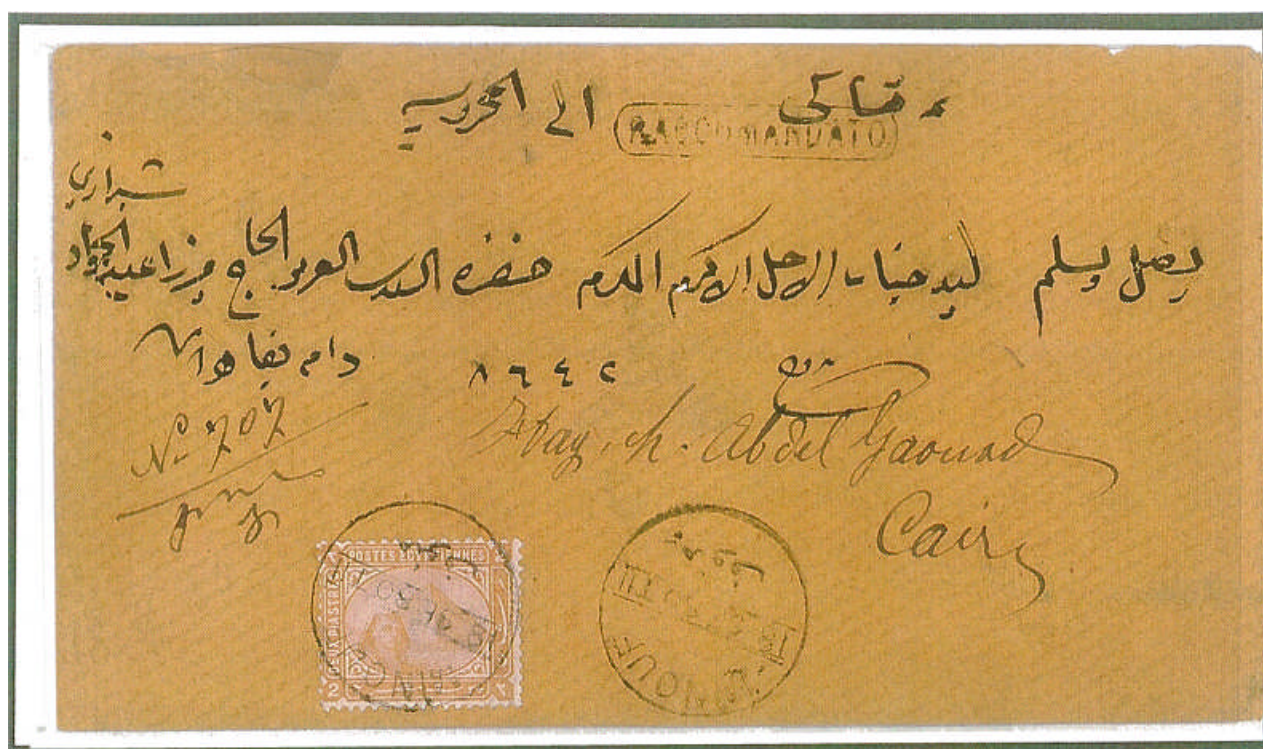 الى المحروسة
RACCOMANDATO
شيرازي
يصل ويسلم ليد جناب الاجل الاكرم المكرم حضرة السيد العزيز الحاج ميرزا عبد الجواد
دام بقاه
٨٦٤٢
No 707
Hag. M. Abdel Gaouad
Cairo
POSTES EGYPTIENNES
DEUX PIASTRES
2
MENOUF